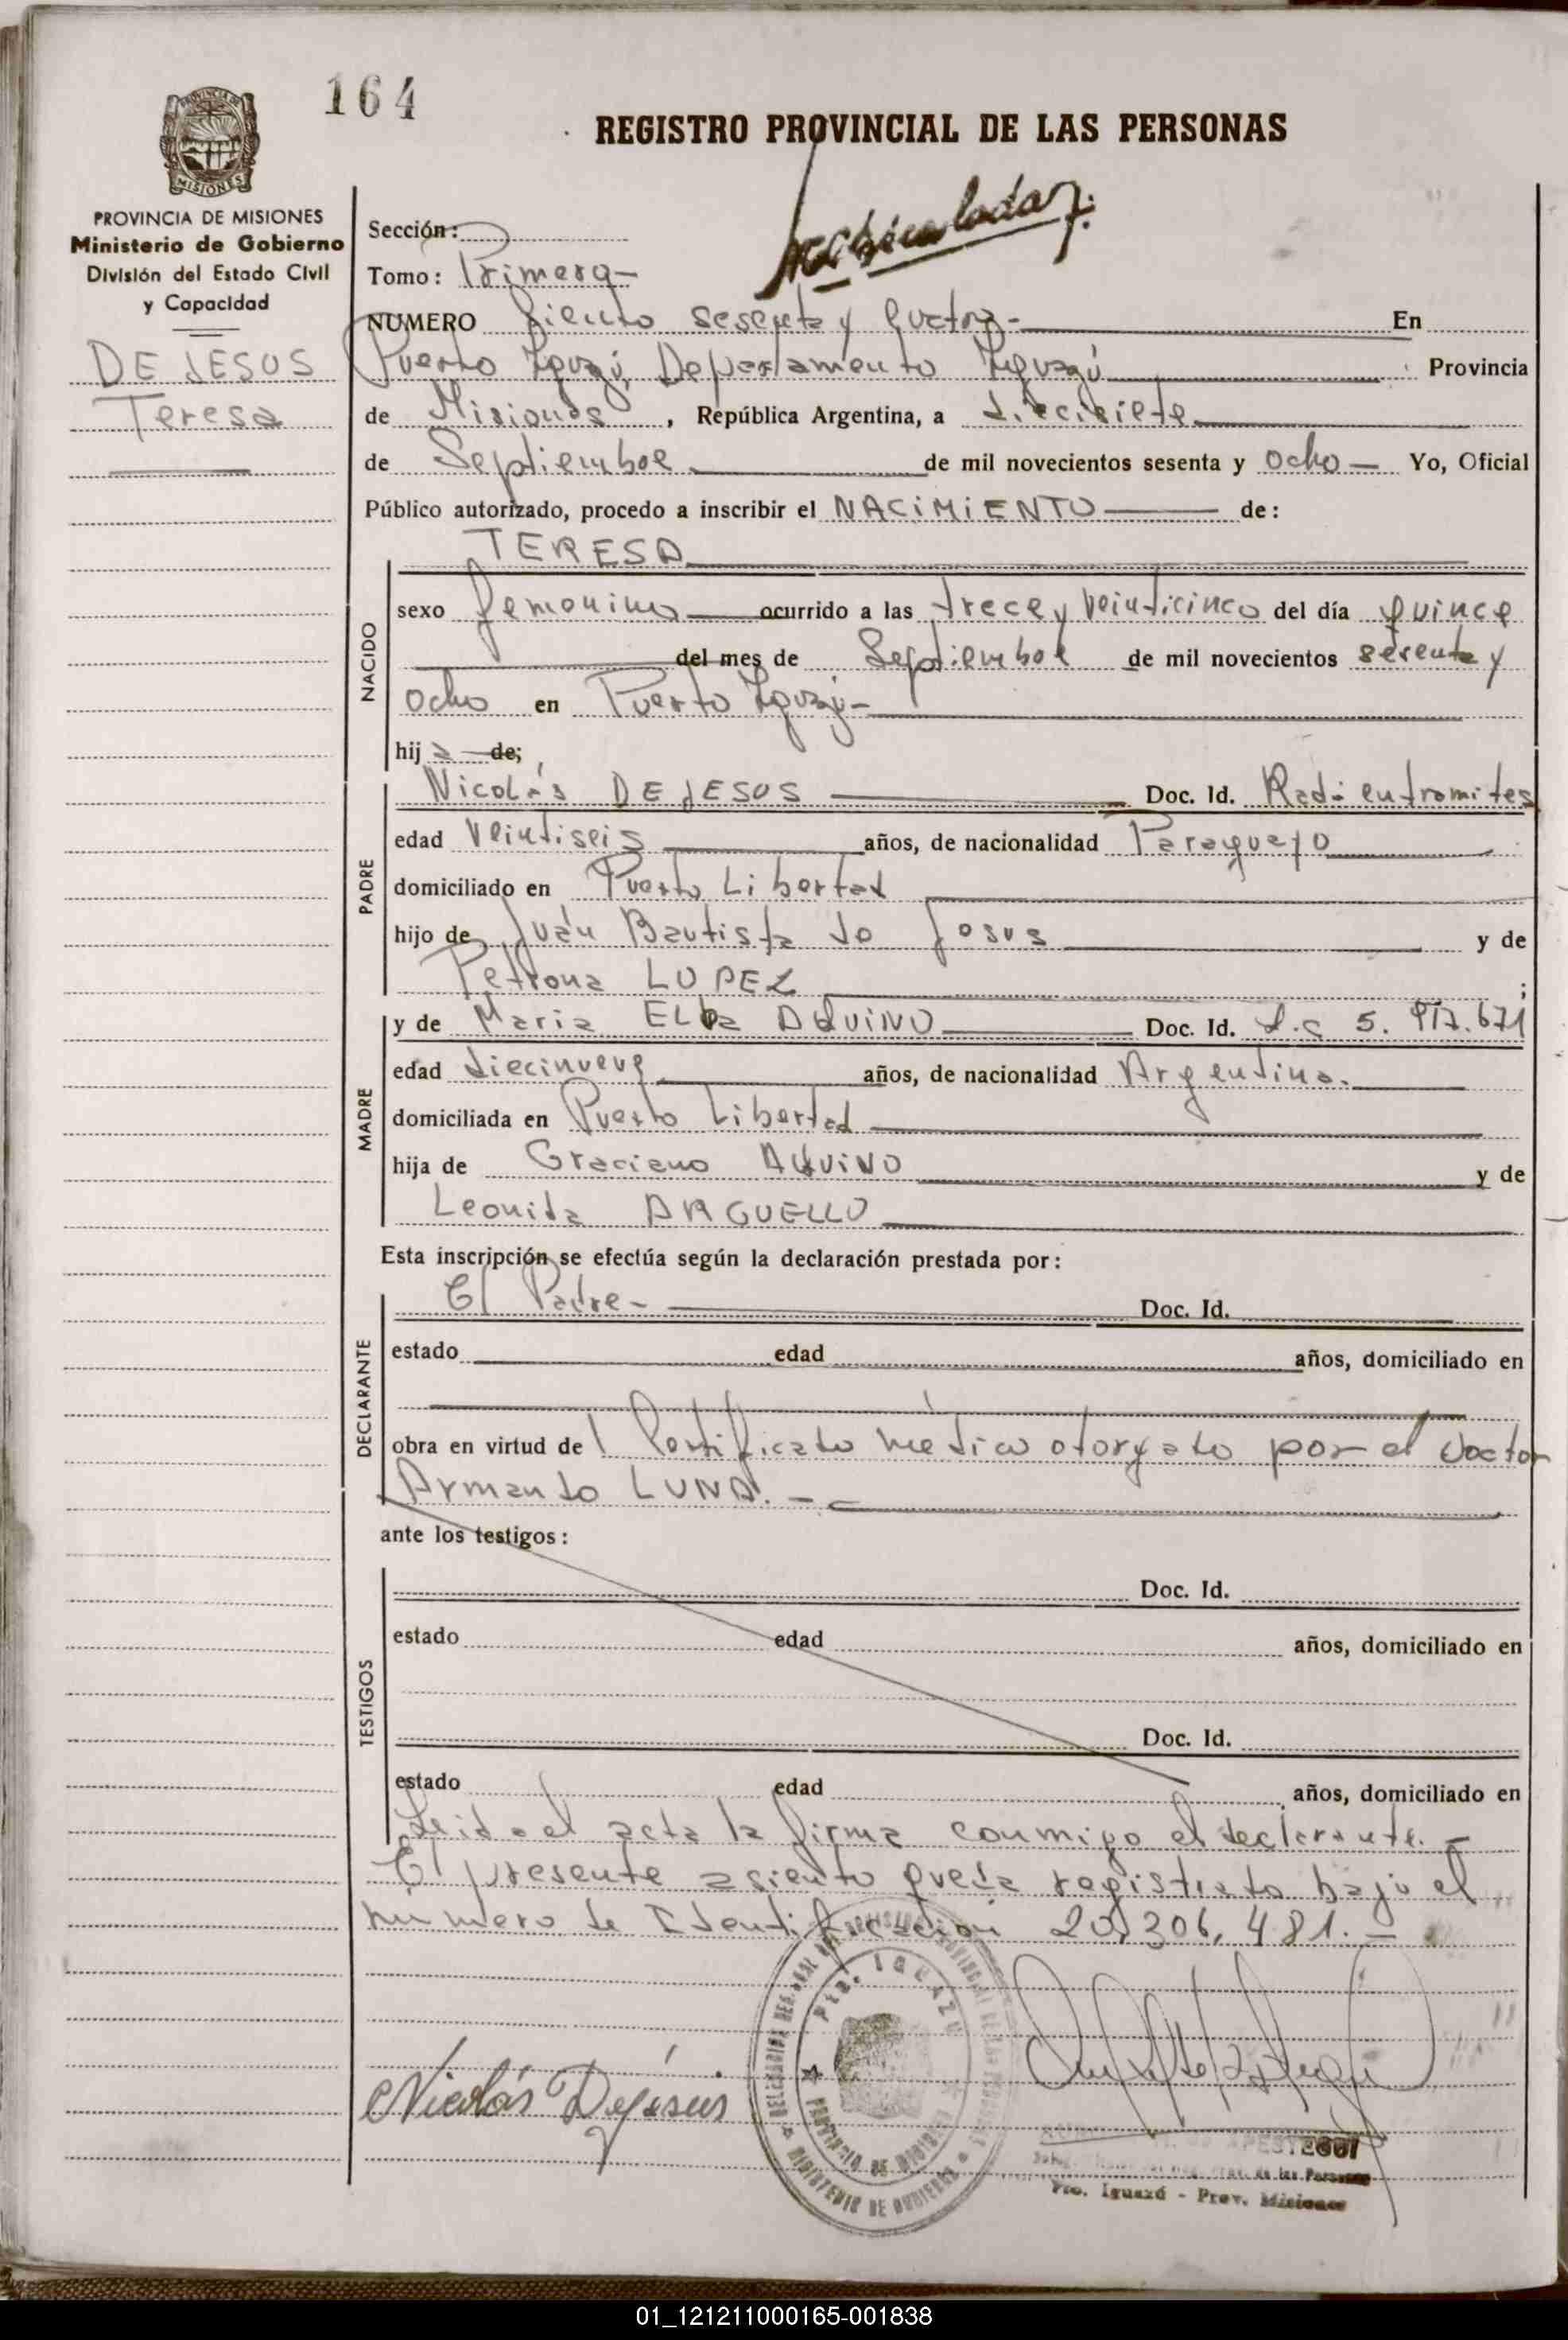 164
REGISTRO PROVINCIAL DE LAS PERSONAS
PROVINCIA DE
MISIONES
PROVINCIA DE MISIONES
Ministerio de Gobierno
División del Estado Civil
y Capacidad
DE JESUS
Teresa
Sección:
Tomo: Primero
NUMERO Ciento sesenta y Cuatro.- En
Puerto Iguazú, Departamento Iguazú Provincia
de Misiones, República Argentina, a diecisiete
de Septiembre de mil novecientos sesenta y ocho Yo, Oficial
Público autorizado, procedo a inscribir el NACIMIENTO de:
TERESA
NACIDO
sexo femenino ocurrido a las trece y veinticinco del día quince
del mes de Septiembre de mil novecientos sesenta y
ocho en Puerto Iguazú-
hij a de;
PADRE
Nicolás DE JESUS Doc. Id. Rad. en tramites
edad veintiseis años, de nacionalidad Paraguayo
domiciliado en Puerto Libertad
hijo de Juán Bautista de Jesus y de
Petrona LOPEZ ;
MADRE
y de Maria Elba AQUINO Doc. Id. L.C 5. 917.671
edad diecinueve años, de nacionalidad Argentina.
domiciliada en Puerto Libertad
hija de Graciano AQUINO y de
Leonida ARGUELLO
Esta inscripción se efectúa según la declaración prestada por:
DECLARANTE
El Padre- Doc. Id.
estado edad años, domiciliado en
obra en virtud del Certificado médico otorgado por el doctor
Armando LUNA.-
ante los testigos:
TESTIGOS
Doc. Id.
estado edad años, domiciliado en
Doc. Id.
estado edad años, domiciliado en
Leida el acta la firma conmigo el declarante.-
El presente asiento queda registrado bajo el
numero de Identificación 20,306,481.-
Nicolás Dejésus
Pto. IGUAZU
PROVINCIA DE MISIONES
MINISTERIO DE GOBIERNO
de las Personas
Pto. Iguazú - Prov. Misiones
01_121211000165-001838